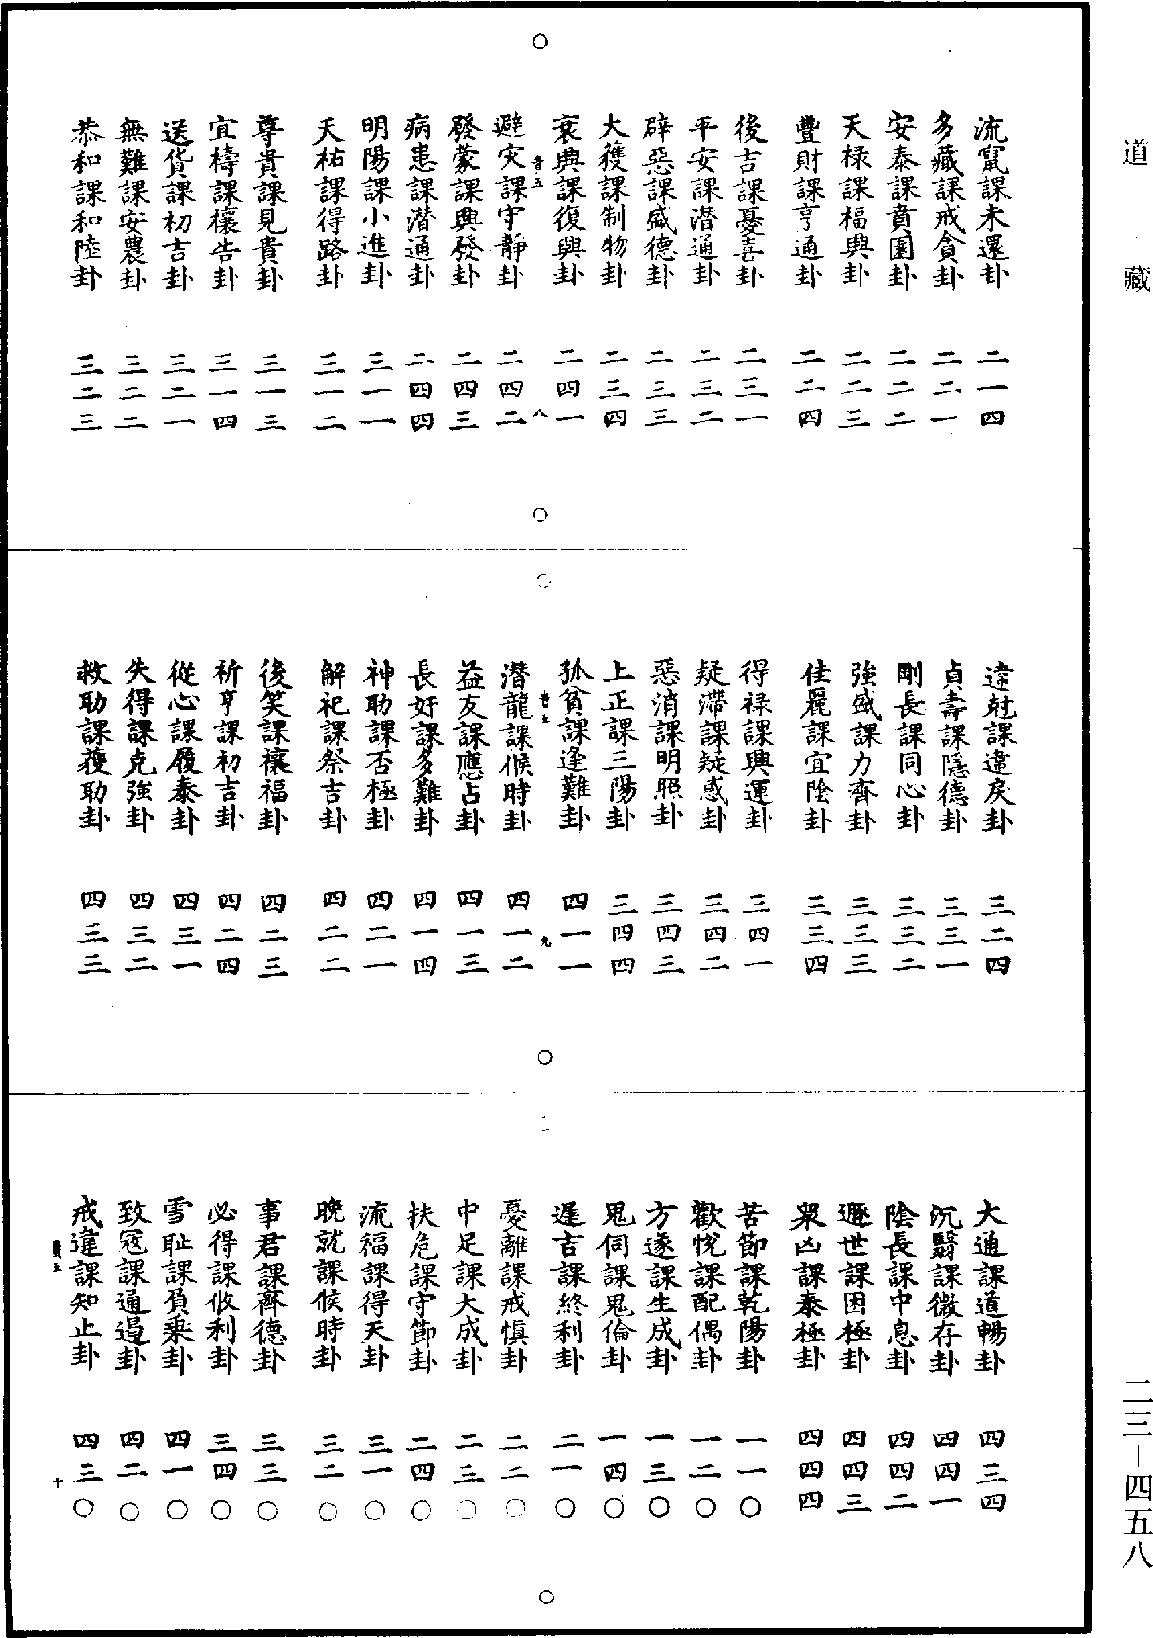 道藏
流竄課未還卦 二一四
多藏課戒貪卦 二二一
安泰課賁園卦 二二二
天祿課福興卦 二二三
豐財課亨通卦 二二四
後吉課憂喜卦 二三一
平安課潛通卦 二三二
辟惡課盛德卦 二三三
大獲課制物卦 二三四
衰興課復興卦 二四一
八
避灾課守靜卦 二四二
發蒙課興發卦 二四三
病患課潛通卦 二四四
明陽課小進卦 三一一
天祐課得路卦 三一二
尊貴課見貴卦 三一三
宜禱課禳告卦 三一四
送貨課初吉卦 三二一
無難課安農卦 三二二
恭和課和陸卦 三二三
違尅課違戾卦 三二四
貞壽課隱德卦 三三一
剛長課同心卦 三三二
強盛課力齊卦 三三三
佳麗課宜陰卦 三三四
得祿課興運卦 三四一
疑滯課疑惑卦 三四二
惡消課明照卦 三四三
上正課三陽卦 三四四
孤貧課逢難卦 四一一
九
潛龍課候時卦 四一二
益友課應占卦 四一三
長好課多難卦 四一四
神助課否極卦 四二一
解祀課祭吉卦 四二二
後笑課禳福卦 四二三
祈亨課初吉卦 四二四
從心課履泰卦 四三一
失得課克強卦 四三二
救助課獲助卦 四三三
大通課道暢卦 四三四
沉翳課微存卦 四四一
陰長課中息卦 四四二
遯世課困極卦 四四三
衆凶課泰極卦 四四四
苦節課乾陽卦 一一〇
歡悅課配偶卦 一二〇
方遂課生成卦 一三〇
鬼伺課鬼倫卦 一四〇
遲吉課終利卦 二一〇
憂離課戒慎卦 二二〇
中足課大成卦 二三〇
扶危課守節卦 二四〇
流福課得天卦 三一〇
晚就課候時卦 三二〇
事君課齊德卦 三三〇
必得課攸利卦 三四〇
雪耻課負乘卦 四一〇
致寇課通遏卦 四二〇
戒違課知止卦 四三〇
十
二三—四五八